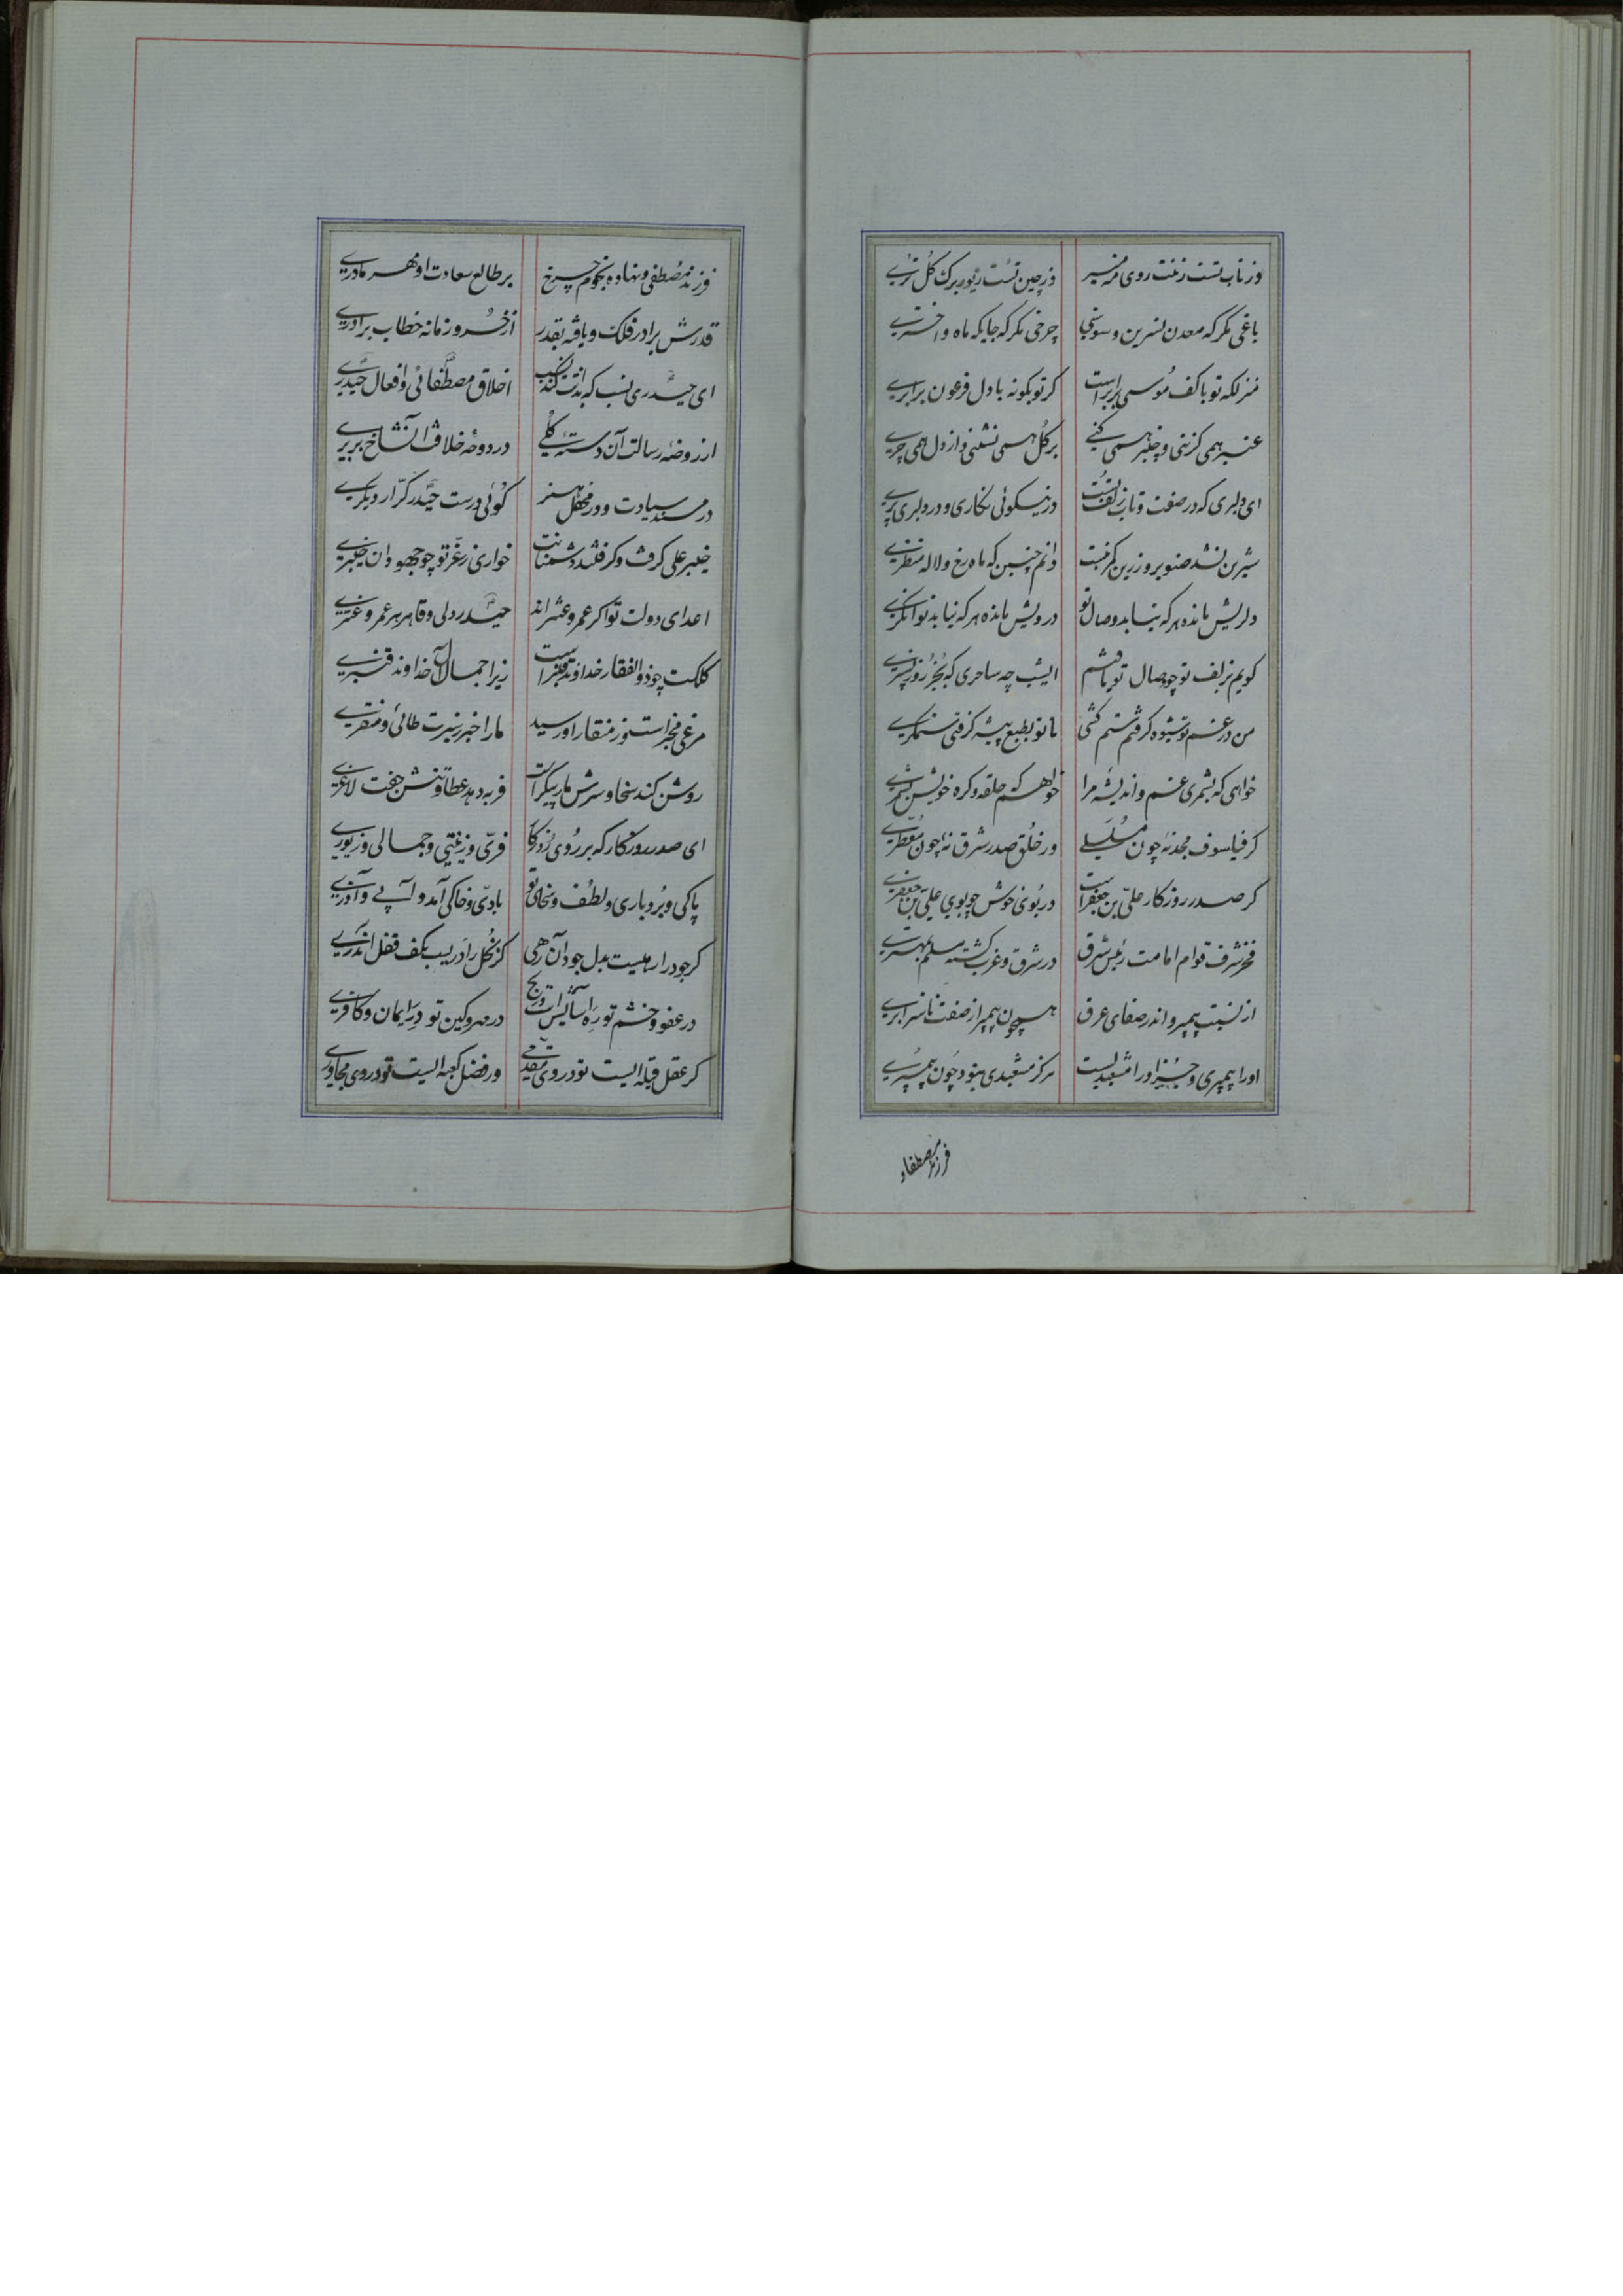 وز تاب تست زینت روی مه منیر وز چین تست زیور برک کل تری
باغی مکر که معدن نسرین و سوسنی چرخی مکر که جایکه ماه و اختری
منزلکه تو با کف موسی برابر است کر تو بکونه با دل فرعون برابری
عنبر همی کزینی و چنبر همی کنی بر کل همی نشینی و از دل همی چری
ای دلبری که در صفت و تاب زلف تست در نیکوئی نکاری و در دلبری پری
شیرین نشد صنوبر و زرین کمر نبست دانم چنین که ماه رخ و لاله منظری
دلریش مانده هر که نیابد وصال تو درویش مانده هر که نیابد توانکری
کویم بزلف تو چو وصال تو یافتم ایشب چه ساحری که بجز روز نسپری
من در غم تو شیوه کرفتم ستم کشی تا تو بطبع پیشه کرفتی ستمکری
خواهی که بشمری غم و اندیشه مرا خواهم که حلقه و کره خویش بشمری
کر فیلسوف مجد نه چون مسلسلی ور خلق صدر شرق نه چون معطری
کر صدر روزکار علی بن جعفر است در بوی خوش چو بوی علی بن جعفری
فخر شرف قوام امامت رئیس شرق در شرق و غرب کشته مسلم بمهتری
از نسبت پیمبر و اندر صفای عرق همچون پیمبر از صفت ناسزا بری
او را پیمبری و جز او را مشعبدیست هرکز مشعبدی نبود چون پیمبری
فرزند مصطفا و
فرزند مصطفی و نهاده نجوم چرخ بر طالع سعادت او مهر مادری
قدرش برادر فلک و یافته بقدر از خسرو زمانه خطاب برادری
ای حیدری نسب که بذاتت کند نسب اخلاق مصطفائی و افعال حیدری
از روضه رسالت آن دسته کلی در دوحه خلافت آن شاخ بر بری
در مسند سیادت و در محفل هنر کوئی درست حیدر کرار دیکری
خیبر علی کرفت و کرفتند دشمنانت خواری ز عز تو چو جهودان خیبری
اعدای دولت تو اکر عمرو عنتراند حیدر دلی و قاهر هر عمرو عنتری
کلکت چو ذوالفقار خداوند قنبر است زیرا جمال آل خداوند قنبری
مرغی مخبر است وز منقار او رسید ما را خبر ز سیرت طائی و منقری
روشن کند سخا و سرش مار پیکر است فربه دهد عطا و تنش جفت لاغری
ای صدر روزکار که بر روی روزکار فری و زینتی و جمالی و زیوری
پاکی و بردباری و لطف و سخای تو بادی و خاکی آمد و آبی و آذری
کر جود را رهیست بدل جود آن رهی کر بخل را دریست بکف قفل آن دری
در عفو و خشم تو ره آسایش است و رنج در مهر و کین تو در ایمان و کافری
کر عقل قبله ایست تو در وی مقدمی ور فضل کعبه ایست تو در وی مجاوری